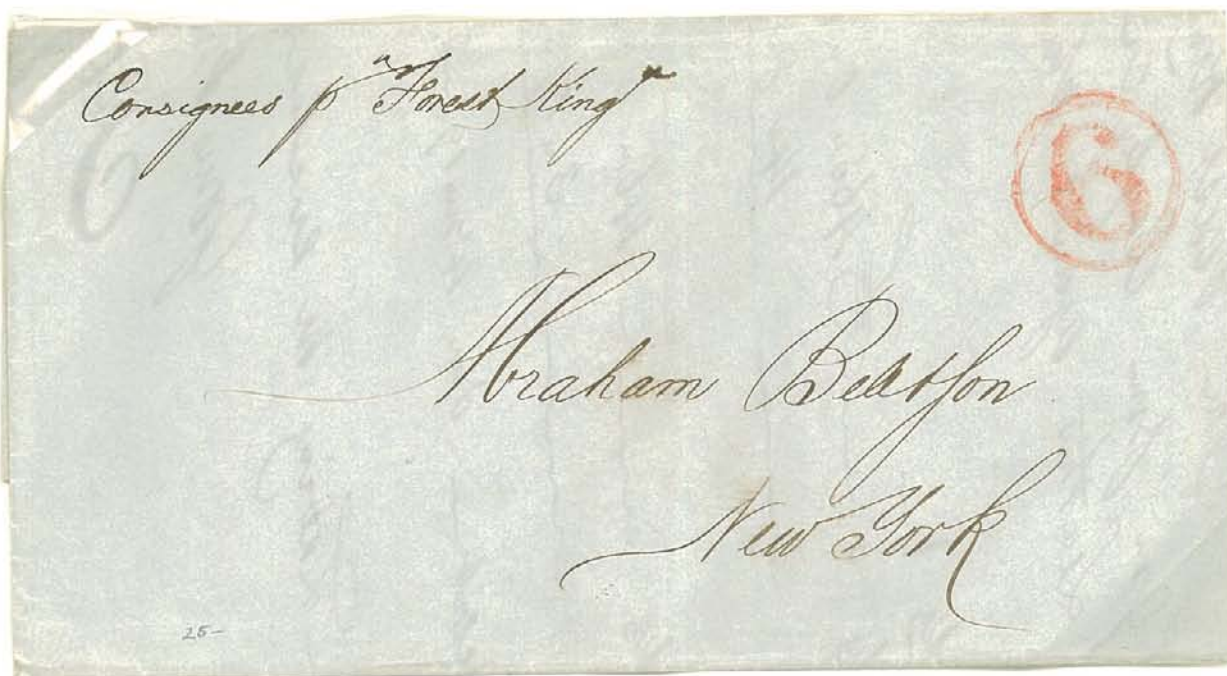 Consignees p "Forest King"
6
Abraham Bell & Son
New York
25-